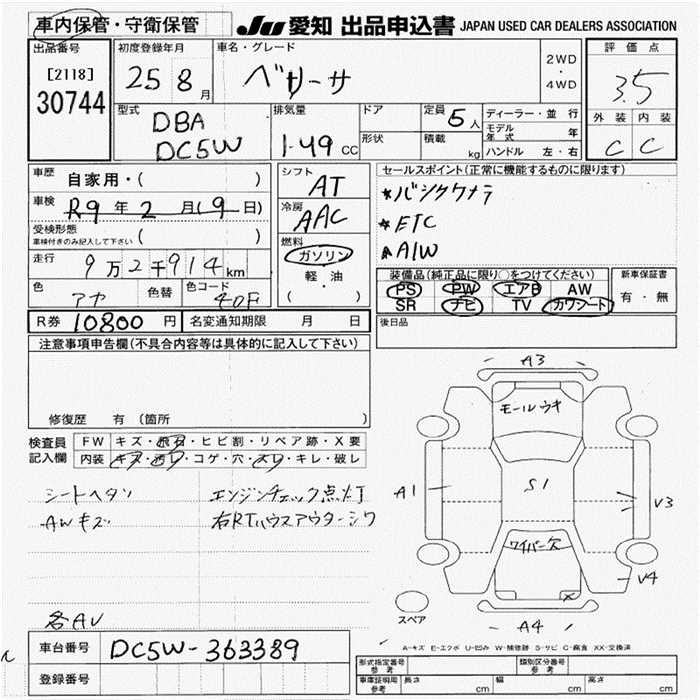 車内保管・守衛保管
JU 愛知 出品申込書 JAPAN USED CAR DEALERS ASSOCIATION
出品番号
[2118]
30744
初度登録年月
25 8月
車名・グレード
ベリーサ
2WD
・
4WD
評価点
3.5
外装 内装
C C
型式
DBA
DC5W
排気量
1.49 CC
ドア
形状
定員 5人
積載 kg
ディーラー・並行
モデル年式 年
ハンドル 左・右
車歴
自家用・( )
車検 R9年2月(9日)
受検形態
車検付きのみ記入して下さい ( )
走行 9万2千914km
色 アカ 色替 色コード 40F
シフト
AT
冷房
AAC
燃料
ガソリン
軽・油
( )
セールスポイント(正常に機能するものに限ります)
*バックカメラ
*ETC
*AIW
装備品(純正品に限り○をつけてください)
PS PW エアB AW
SR ナビ TV カワシート
新車保証書
有・無
R券 10800円 名変通知期限 月 日
後日品
注意事項申告欄(不具合内容等は具体的に記入して下さい)
修復歴 有(箇所 )
検査員記入欄
FW キズ・飛石・ヒビ割・リペア跡・X要
内装 キズ・汚レ・コゲ・穴・スレ・キレ・破レ
シートヘタリ エンジンチェック点灯
AWキズ 右RTハウスアウターシワ
各AU
A3
モールウキ
A1
S1
V3
ワイパー欠
V4
スペア
A4
A-キズ E-エクボ U-凹み W-補修跡 S-サビ C-腐食 XX-交換済
車台番号 DC5W-363389
登録番号
型式指定番号
参考
類別区分番号
参考
車庫証明用
参考
長さ cm 幅 cm 高さ cm